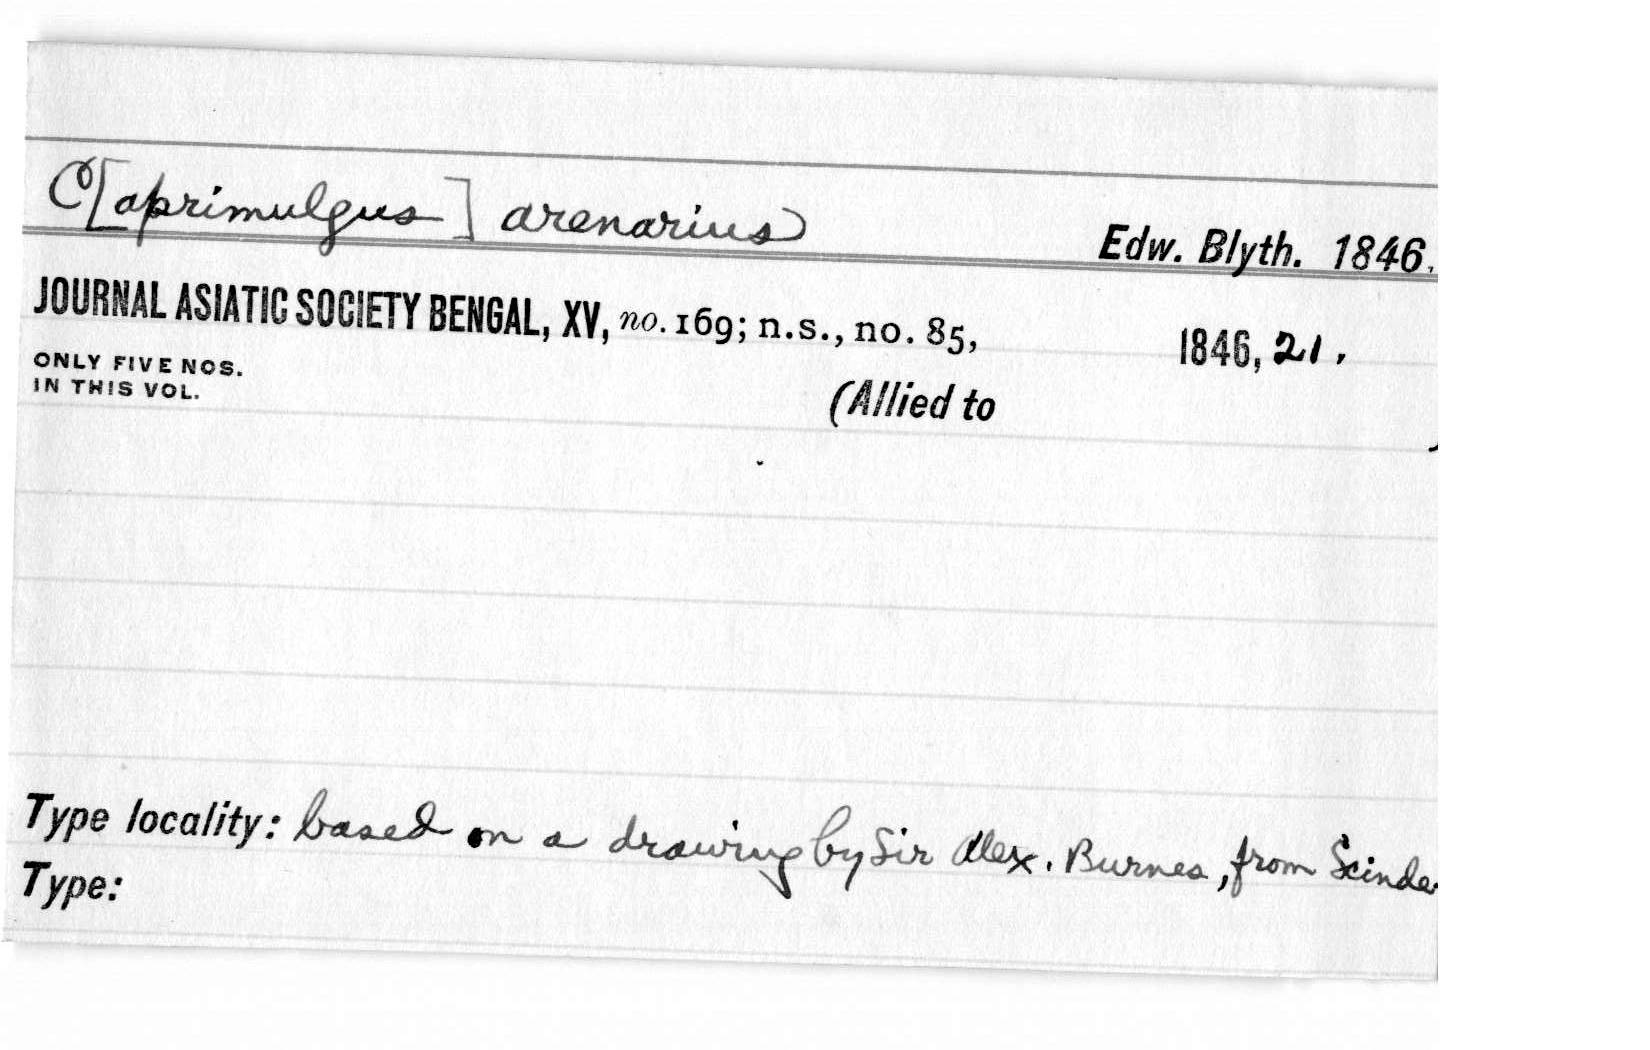 C[aprimulgus] arenarius
Edw. Blyth. 1846.
JOURNAL ASIATIC SOCIETY BENGAL, XV, no. 169; n.s., no. 85, 1846, 21.
ONLY FIVE NOS.
IN THIS VOL.
(Allied to )
Type locality: based on a drawing by Sir Alex. Burnes, from Scinde
Type: